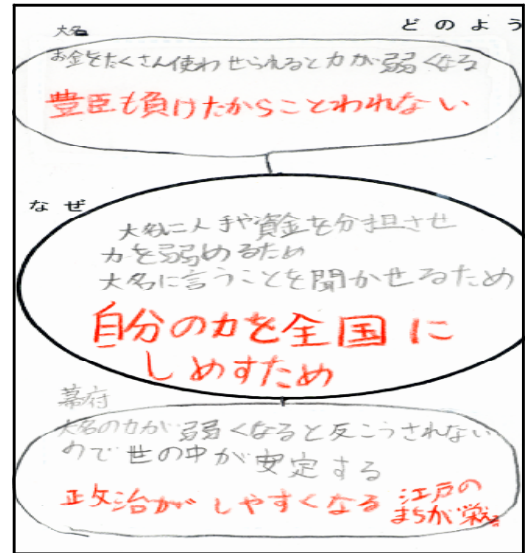 どのよう
大名
お金をたくさん使わせられると力が弱くなる
豊臣も負けたからことわれない
なぜ
大名に人手や資金を分担させ
力を弱めるため
大名に言うことを聞かせるため
自分の力を全国に
しめすため
幕府
大名の力が弱くなると反こうされない
ので世の中が安定する
政治がしやすくなる 江戸の
まちが栄